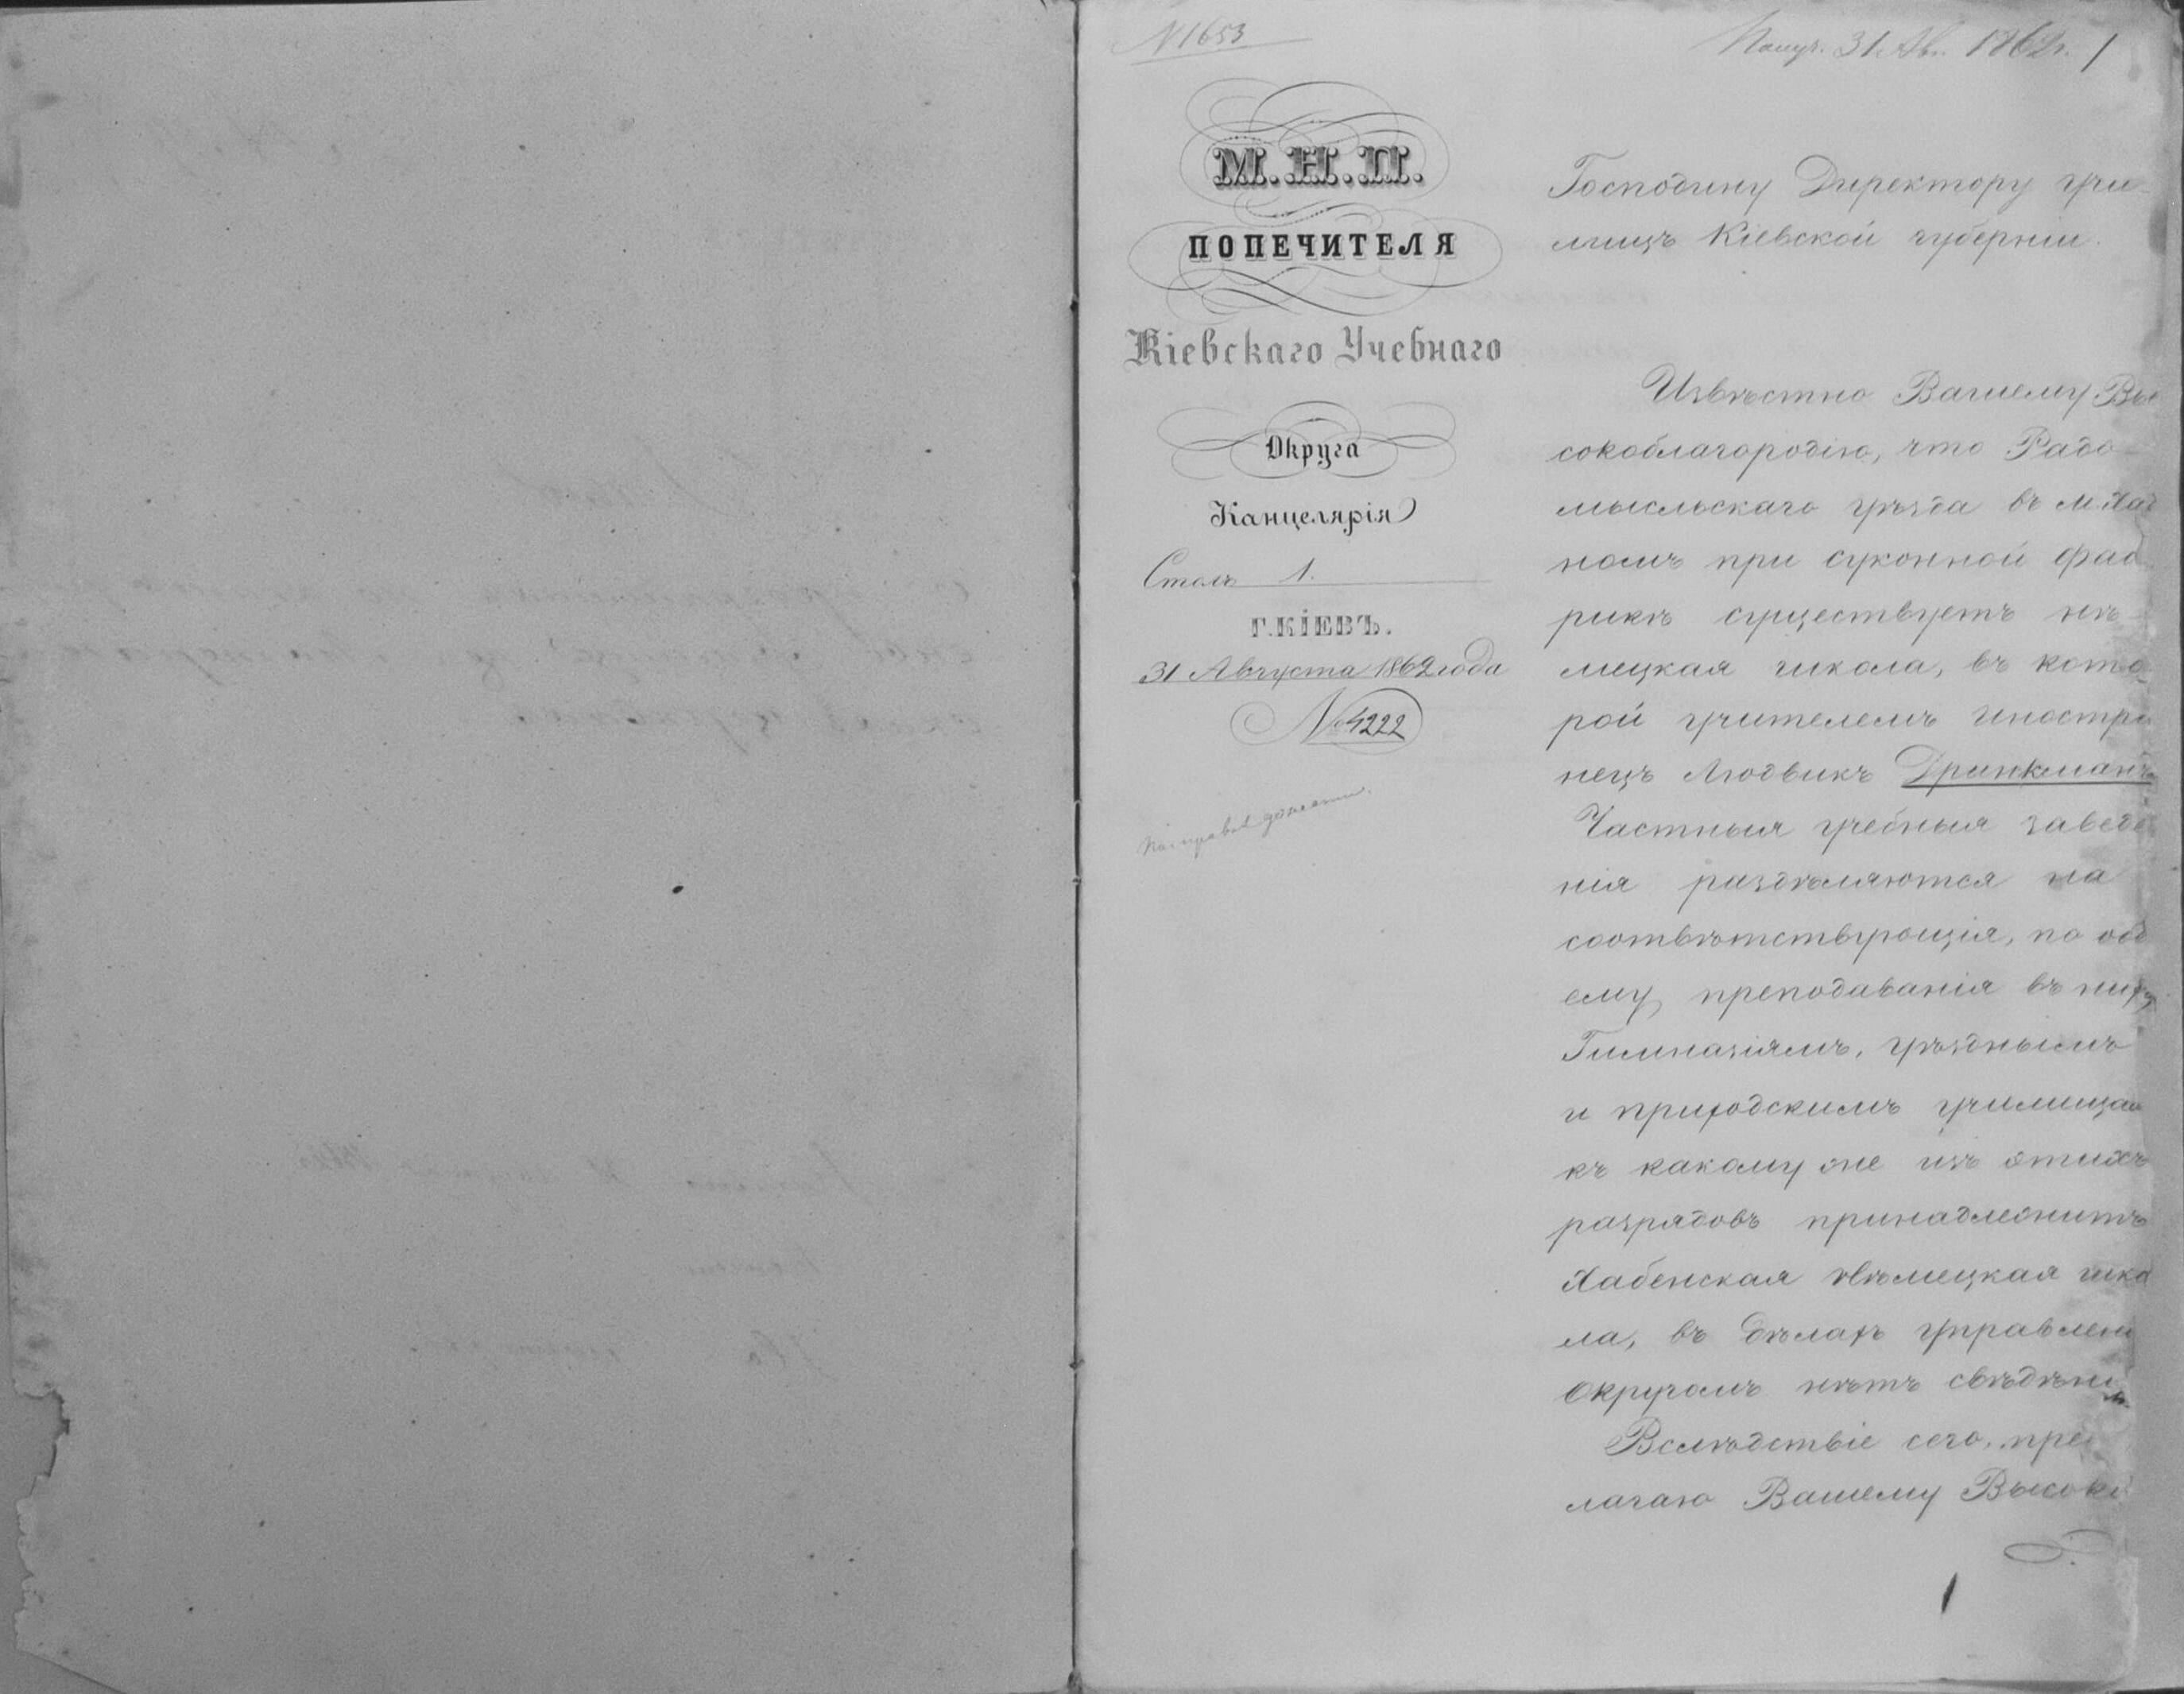 N 1653
Получ. 31 Авг. 1862 г. 1
М.Н.П.
ПОПЕЧИТЕЛЯ
Кіевскаго Учебнаго
Округа
Канцелярія
Столъ 1.
Г. КІЕВЪ.
31 Августа 1862 года
№ 4222
Господину Директору учи-
лищъ Кіевской губерніи.
Извѣстно Вашему Вы
сокоблагородію, что Радо-
мысльскаго уѣзда въ м. Хаб
номъ при суконной фаб
рикѣ существуетъ нѣ-
мецкая школа, въ кото-
рой учителемъ иностра
нецъ Людвикъ Дринкманъ
Частныя учебныя заведе
нія раздѣляются на
соотвѣтствующія, по объ
ему преподаванія въ нихъ
Гимназіямъ, уѣзднымъ
и приходскимъ училищам
къ какому же изъ этихъ
разрядовъ принадлежитъ
Хабенская Нѣмецкая шко
ла, въ дѣлахъ Управлен
Округомъ нѣтъ свѣдѣні
Вслѣдствіе сего, пре
лагаю Вашему Высоко
1